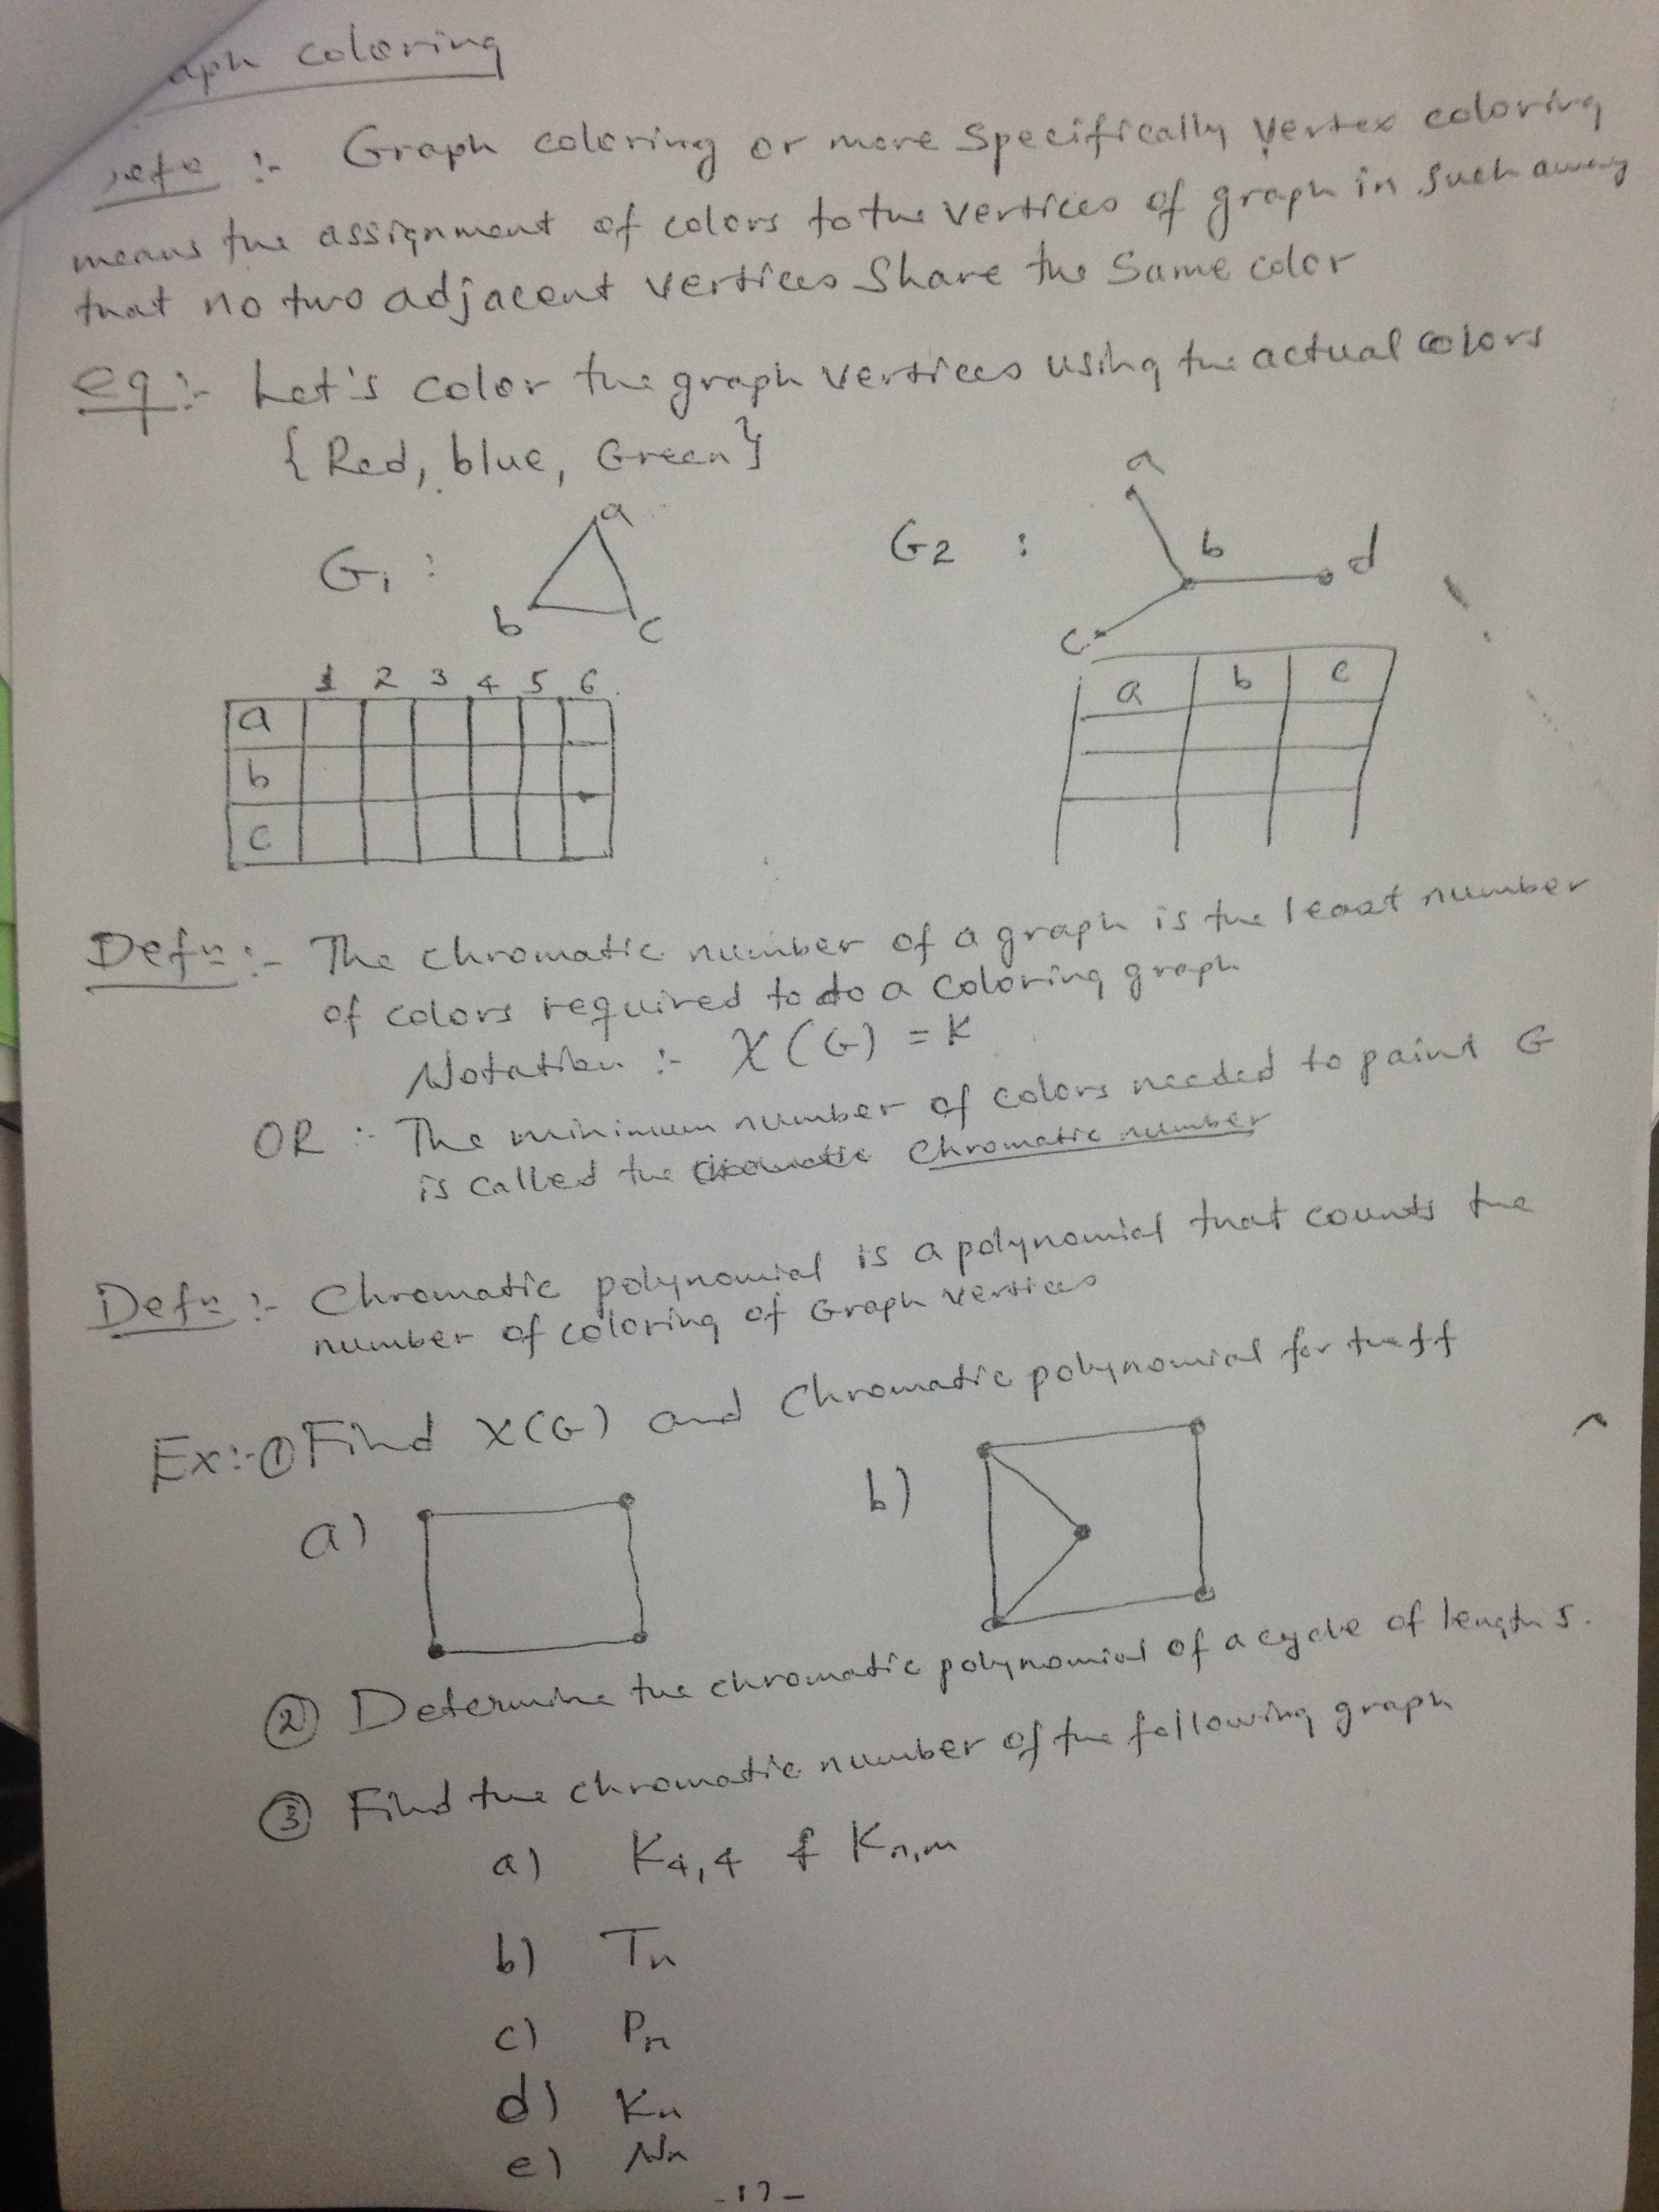 aph coloring
:- Graph coloring or more specifically vertex coloring
means the assignment of colors to the vertices of graph in such away
that no two adjacent vertices share the same color
eg:- Let's color the graph vertices using the actual colors
{Red, blue, Green}
G1 :
a
b
c
G2 :
a
b
d
c
1 2 3 4 5 6
a
b
c
a b c
Defn:- The chromatic number of a graph is the least number
of colors required to do a coloring graph
Notation :- χ(G) = K
OR :- The minimum number of colors needed to paint G
is called the Chromatic number
Defn:- Chromatic polynomial is a polynomial that counts the
number of coloring of Graph vertices
Ex:- ① Find χ(G) and Chromatic polynomial for the ff
a)
b)
② Determine the chromatic polynomial of a cycle of length 5.
③ Find the chromatic number of the following graph
a) K4,4 & Kn,m
b) Tn
c) Pn
d) Kn
e) Nn